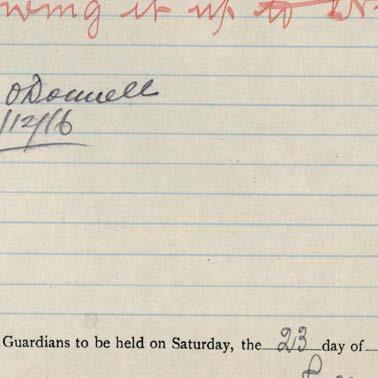 wing it up to
O'Donnell
/12/16
Guardians to be held on Saturday, the 23 day of